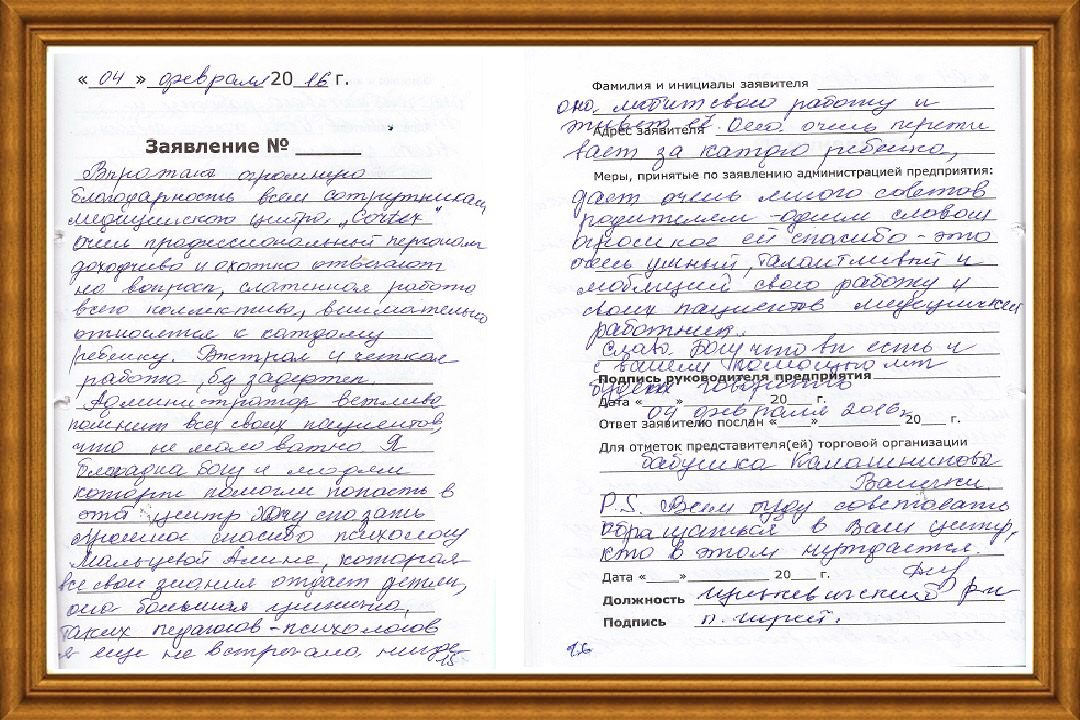 « 04 » февраля 20 16 г.
Заявление №
огромную
благодарность всем сотрутникам
медицинского центра „Cortex“
очень профессиональный персонал
доходчиво и охотно отвечают
на вопросы, слаженная работа
всего коллектива, внимательно
относятся к каждому
ребенку. Быстрая и четкая
работа, без задержек.
Администратор ветливо
помнит всех своих пациентов,
что не мало важно. Я
Богу и людям
которые помогли попасть в
этот центр Хочу сказать
огромное спасибо психологу
Мальцевой Алине, которая
все свои знания отдаёт детям,
она большая умничка,
таких педагогов-психологов
я еще не встречала нигде
15
Фамилия и инициалы заявителя
она любит свою работу и
живёт ей. Она очень пережи
Адрес заявителя
вает за каждого ребенка,
Меры, принятые по заявлению администрацией предприятия:
дает очень много советов
родителям - одним словом
огромное ей спасибо - это
очень умный, талантливый и
любящий свою работу и
своих пациентов медицинский
работник.
Слава Богу что вы есть и
с вашей помощью мы
Подпись руководителя предприятия
будем говорить
Дата « » 20 г.
04 февраля 2016г
Ответ заявителю послан « » 20 г.
Для отметок представителя(ей) торговой организации
бабушка Калашникова
Ванечки.
P.S. Всем буду советовать
обращаться в Ваш центр,
кто в этом нуждается.
Дата « » 20 г.
Должность р-н
Подпись
16